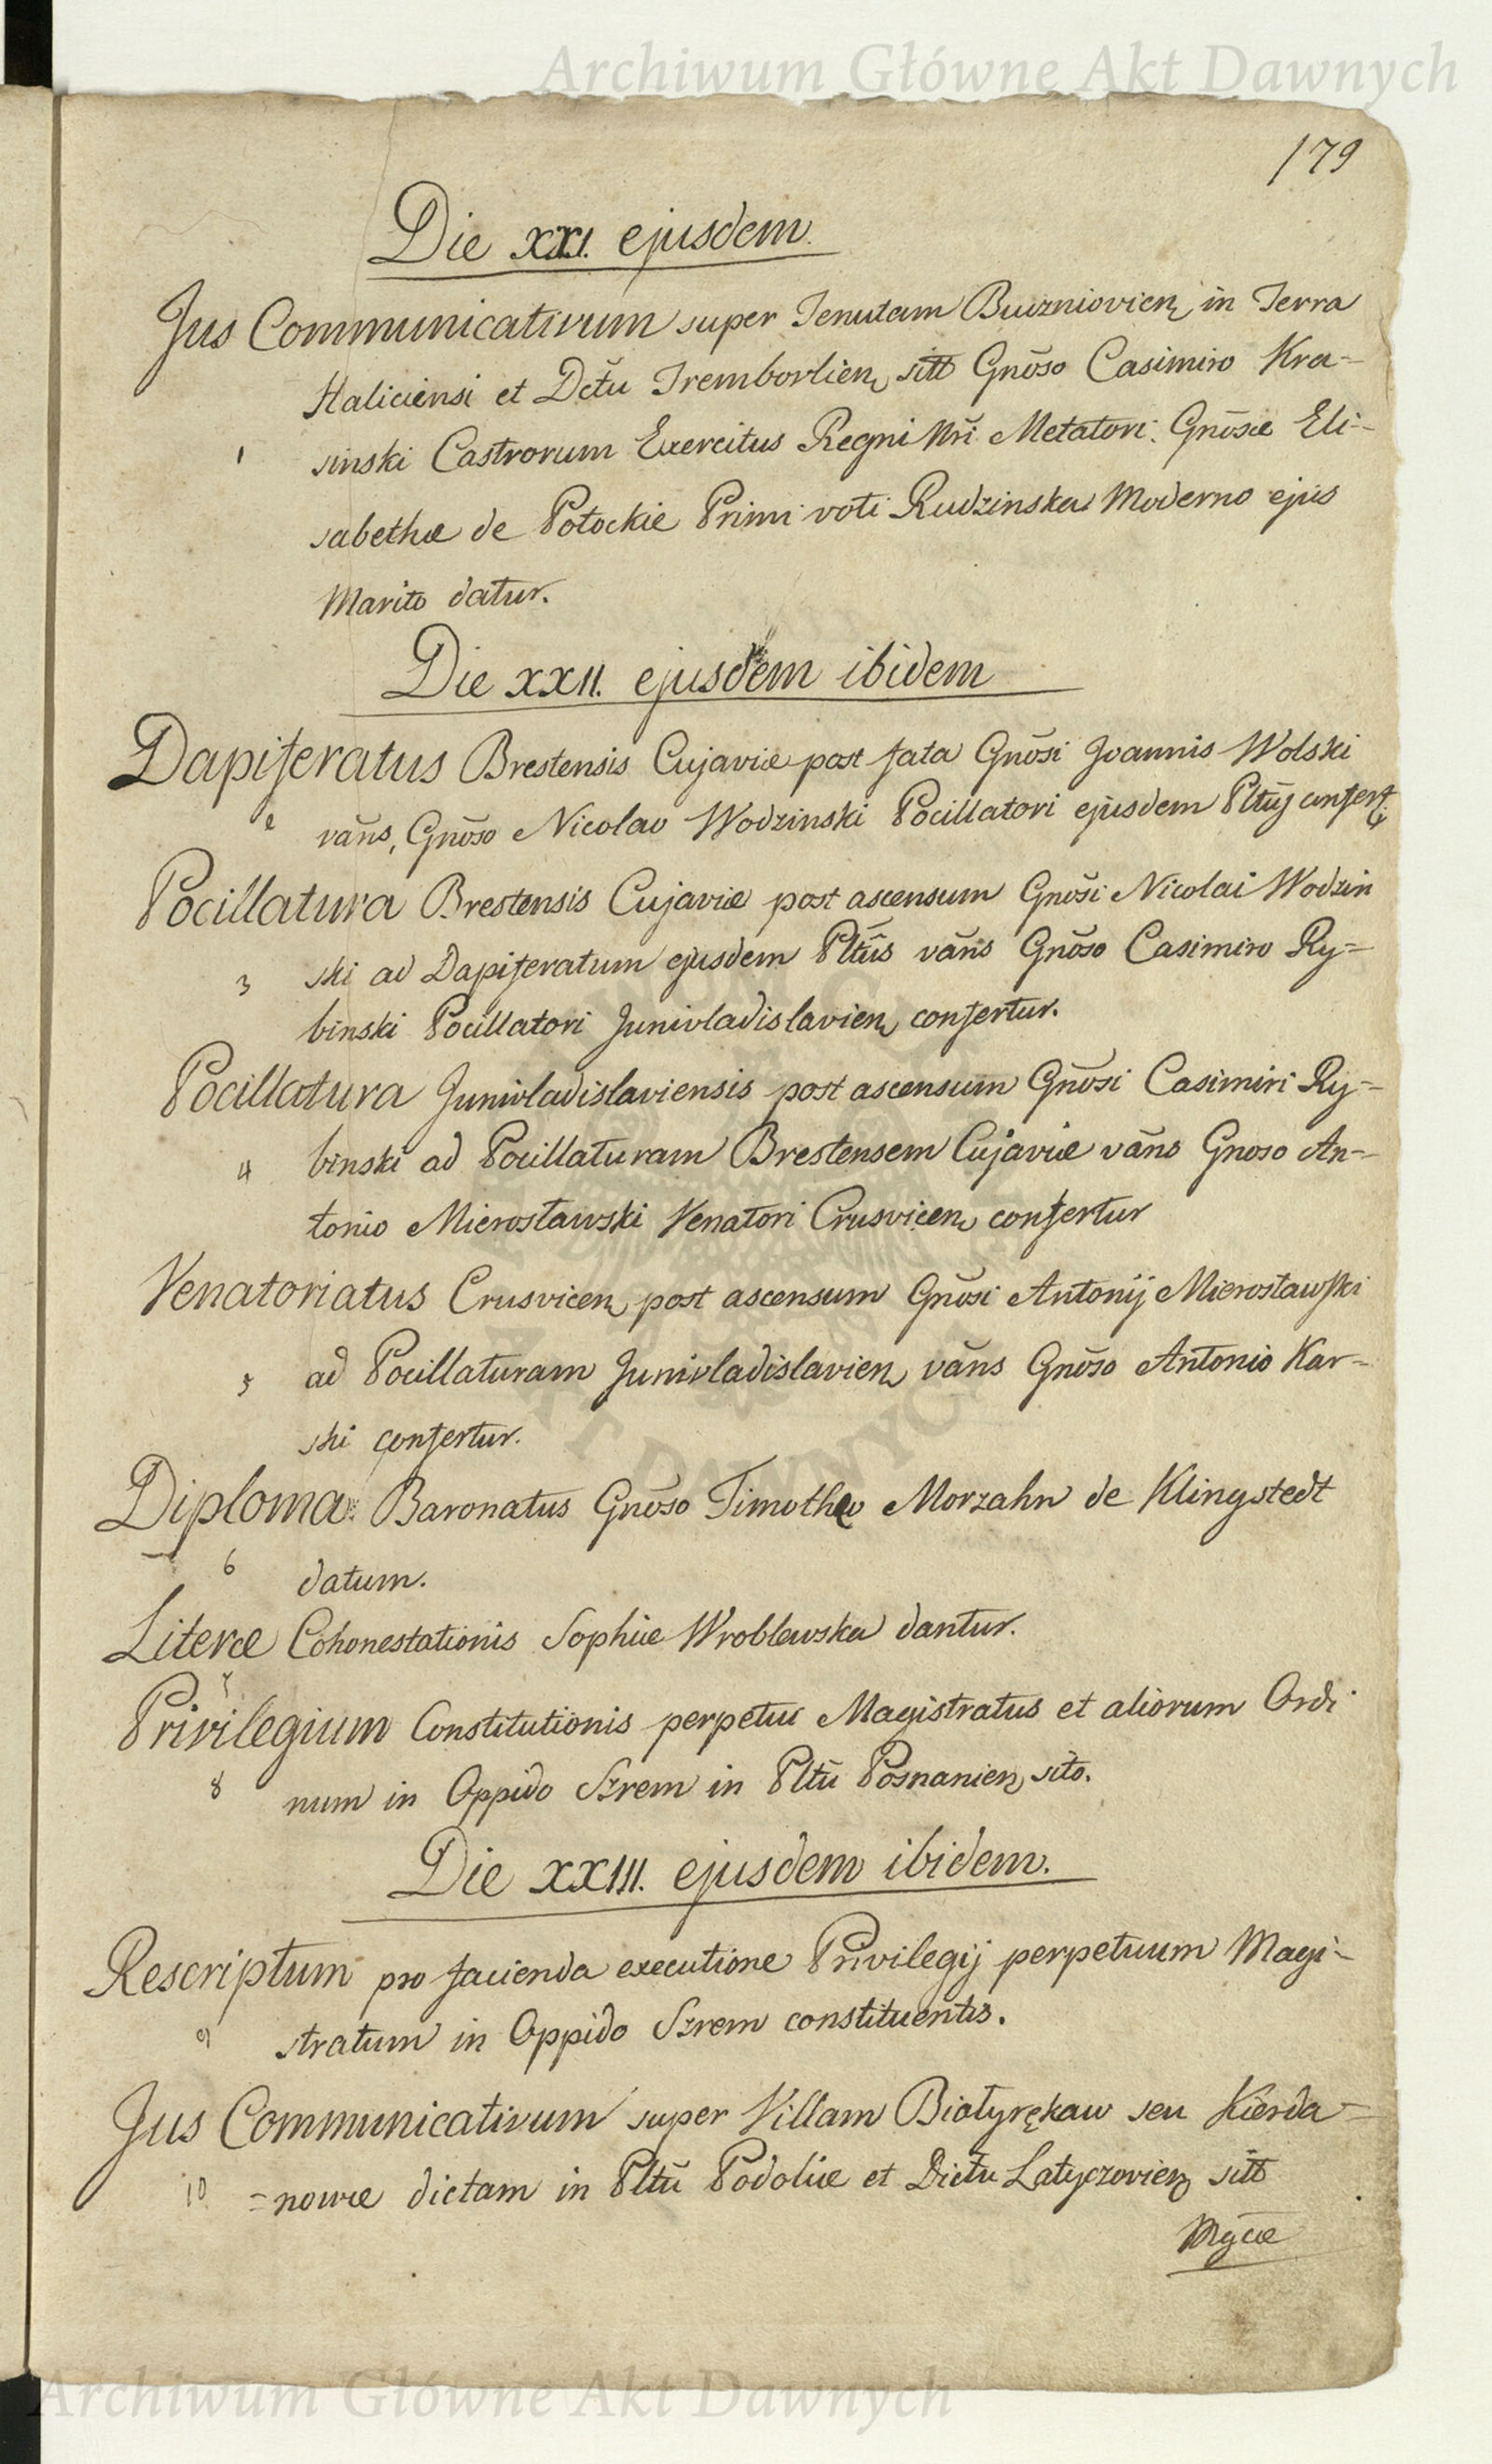 Archiwum Główne Akt Dawnych
179
Die XXI. ejusdem.
Jus Communicativum super Tenutam Buczniovien, in Terra
Haliciensi et Dctu Tremborlien, sitt Gnõso Casimiro Kra=
1 sinski Castrorum Exercitus Regni Nri Metatori. Gnõsæ Eli=
sabethæ de Potockie Primi voti Rudzinska Moderno ejus
Marito datur.
Die XXII. ejusdem ibidem
Dapiferatus Brestensis Cujaviæ post fata Gnõsi Joannis Wolski
2 vãns, Gnõso Nicolao Wodzinski Pocillatori ejusdem Pltũs confert.
Pocillatura Brestensis Cujaviæ post ascensum Gnõsi Nicolai Wodzin
3 ski ad Dapiferatum ejusdem Pltũs vãns Gnõso Casimiro Ry=
binski Pocillatori Junivladislavien, confertur.
Pocillatura Junivladislaviensis post ascensum Gnõsi Casimiri Ry=
4 binski ad Pocillaturam Brestensem Cujaviæ vãns Gnoso An=
tonio Mierosławski Venatori Crusvicen, confertur
Venatoriatus Crusvicen, post ascensum Gnõsi Antonij Mierosławski
5 ad Pocillaturam Junivladislavien, vãns Gnõso Antonio Kar=
ski confertur.
Diploma Baronatus Gnõso Timotheo Morzahn de Klingstedt
6 datum.
Literæ Cohonestationis Sophiæ Wroblewska dantur.
7
Privilegium Constitutionis perpetui Magistratus et aliorum Ordi
8 num in Oppido Szrem in Pltũ Posnanien, sito.
Die XXIII. ejusdem ibidem.
Rescriptum pro facienda executione Privilegij perpetuum Magi=
9 stratum in Oppido Szrem constituentis.
Jus Communicativum super Villam Białyrękaw seu Kierda=
10 =nowce dictam in Pltũ Podoliæ et Dictu Latyczovien, sitt
Mgcæ
Archiwum Główne Akt Dawnych